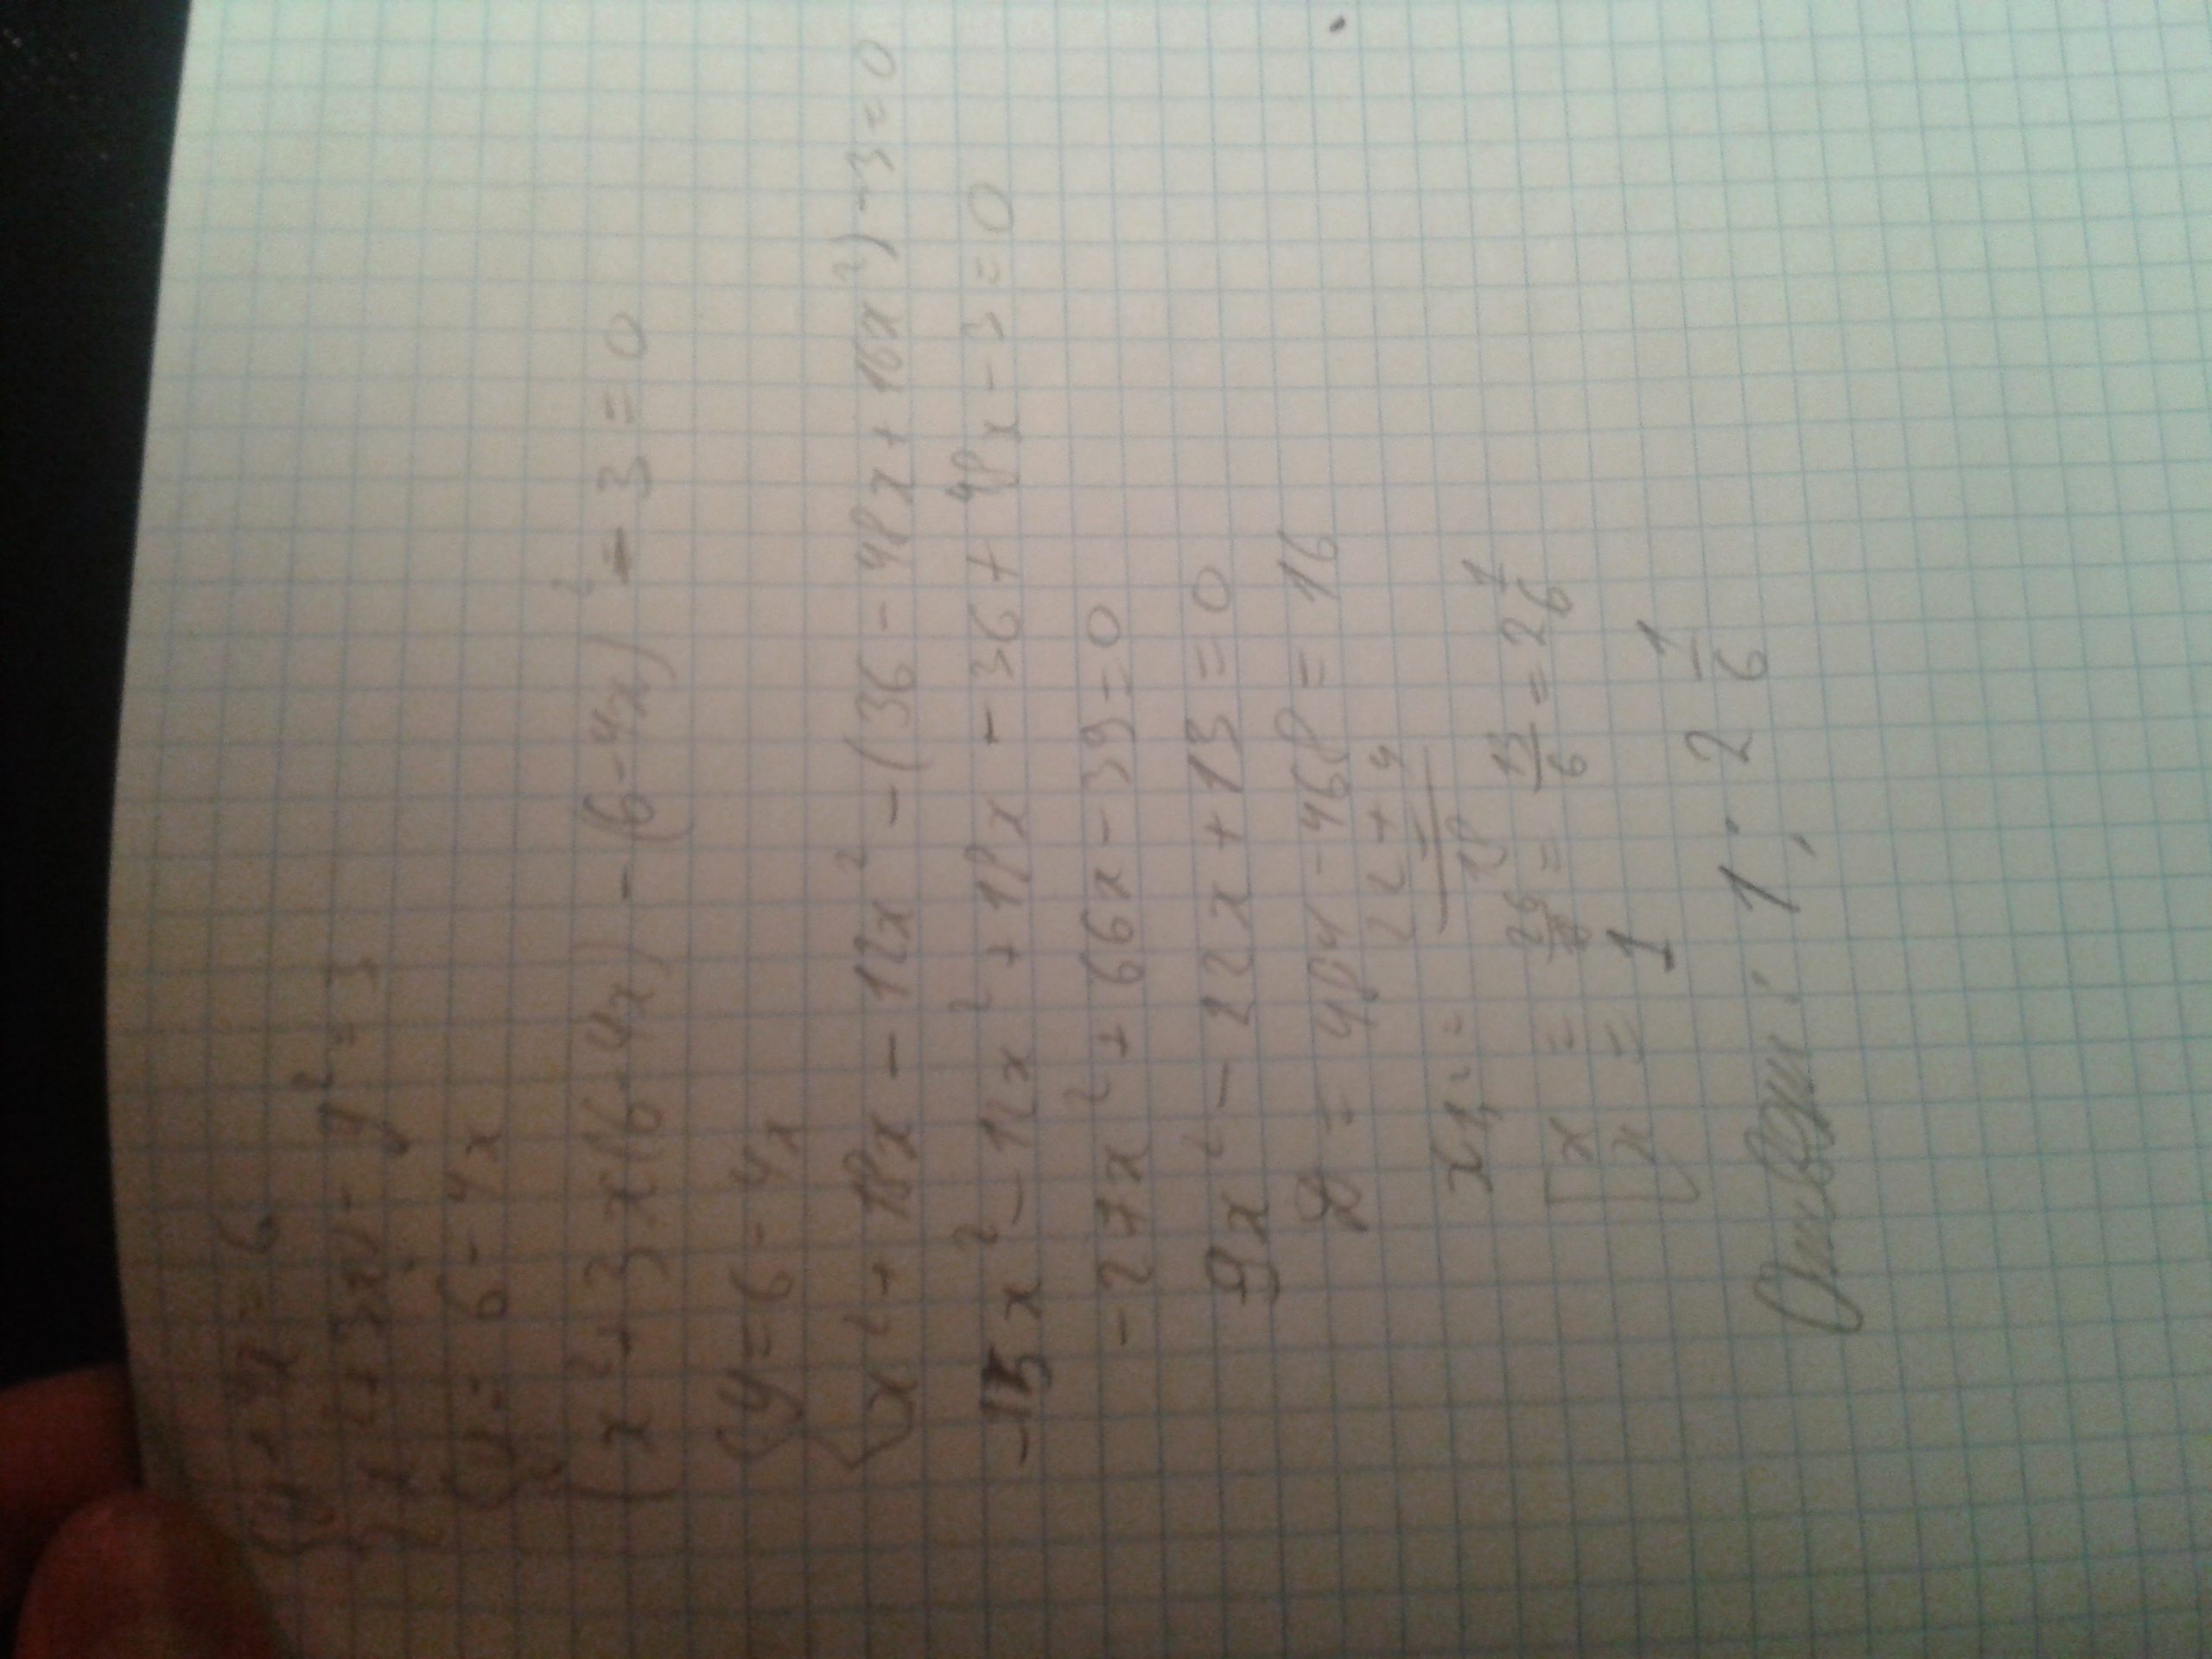 {y + 4x = 6
{x² + 3xy - y² = 3
{y = 6 - 4x
{x² + 3x(6-4x) - (6-4x)² - 3 = 0
{y = 6 - 4x
{x² + 18x - 12x² - (36 - 48x + 16x²) - 3 = 0
-15x² - 12x² + 18x - 36 + 48x - 3 = 0
-27x² + 66x - 39 = 0
9x² - 22x + 13 = 0
D = 484 - 468 = 16
x1,2 = 22 + 4 / 18 =
[x = 26/ = 13/6 = 2 1/6
[x = 1
Ответ: 1; 2 1/6